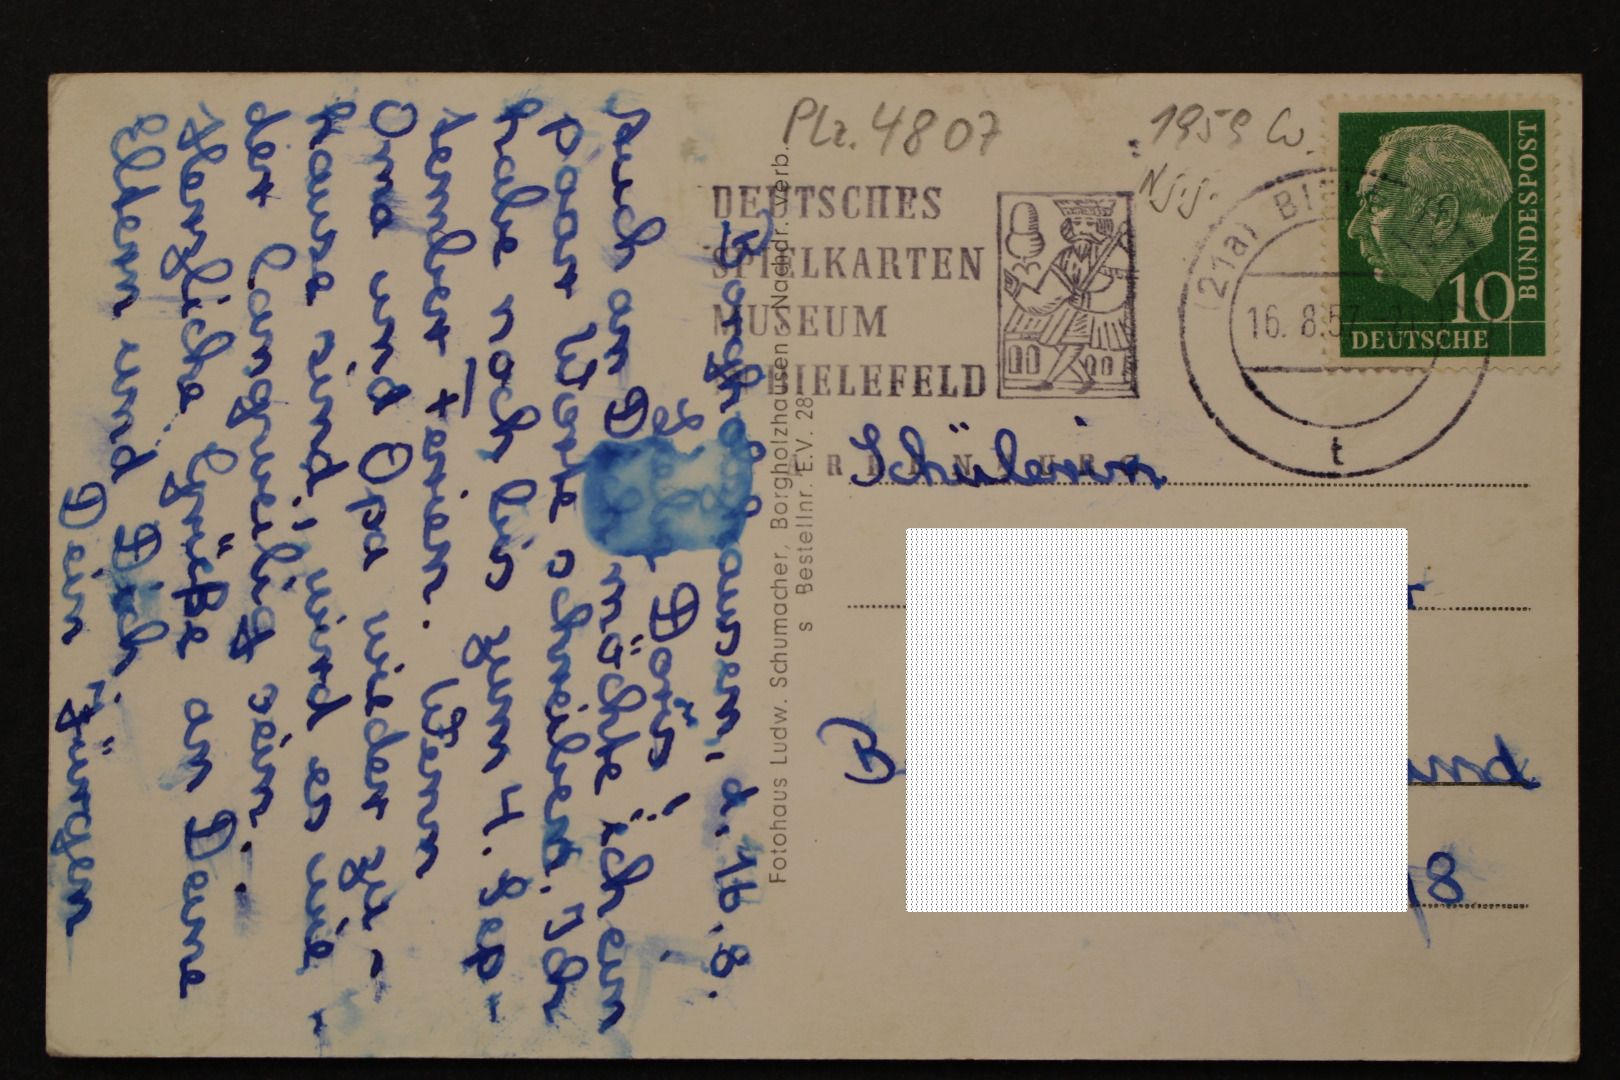 Borgholzhausen, d. 16.8.
Liebe Doris!
Auch an D möchte ich ein
paar Worte schreiben. Ich
habe noch bis zum 4. Sep-
tember Ferien. Wenn
Oma und Opa wieder zu-
hause sind, wird es wie-
der langweilig sein.
Herzliche Grüße an Deine
Eltern und Dich,
Dein Jürgen
Fotohaus Ludw. Schumacher, Borgholzhausen Nachdr. verb.
s Bestellnr. E.V. 28
Plz. 4807
1959 W.
N.j.j.
DEUTSCHES
SPIELKARTEN
MUSEUM
BIELEFELD
(21a) BI
16. 8.57
t
BUNDESPOST
10
DEUTSCHE
Schülerin
B
und
18